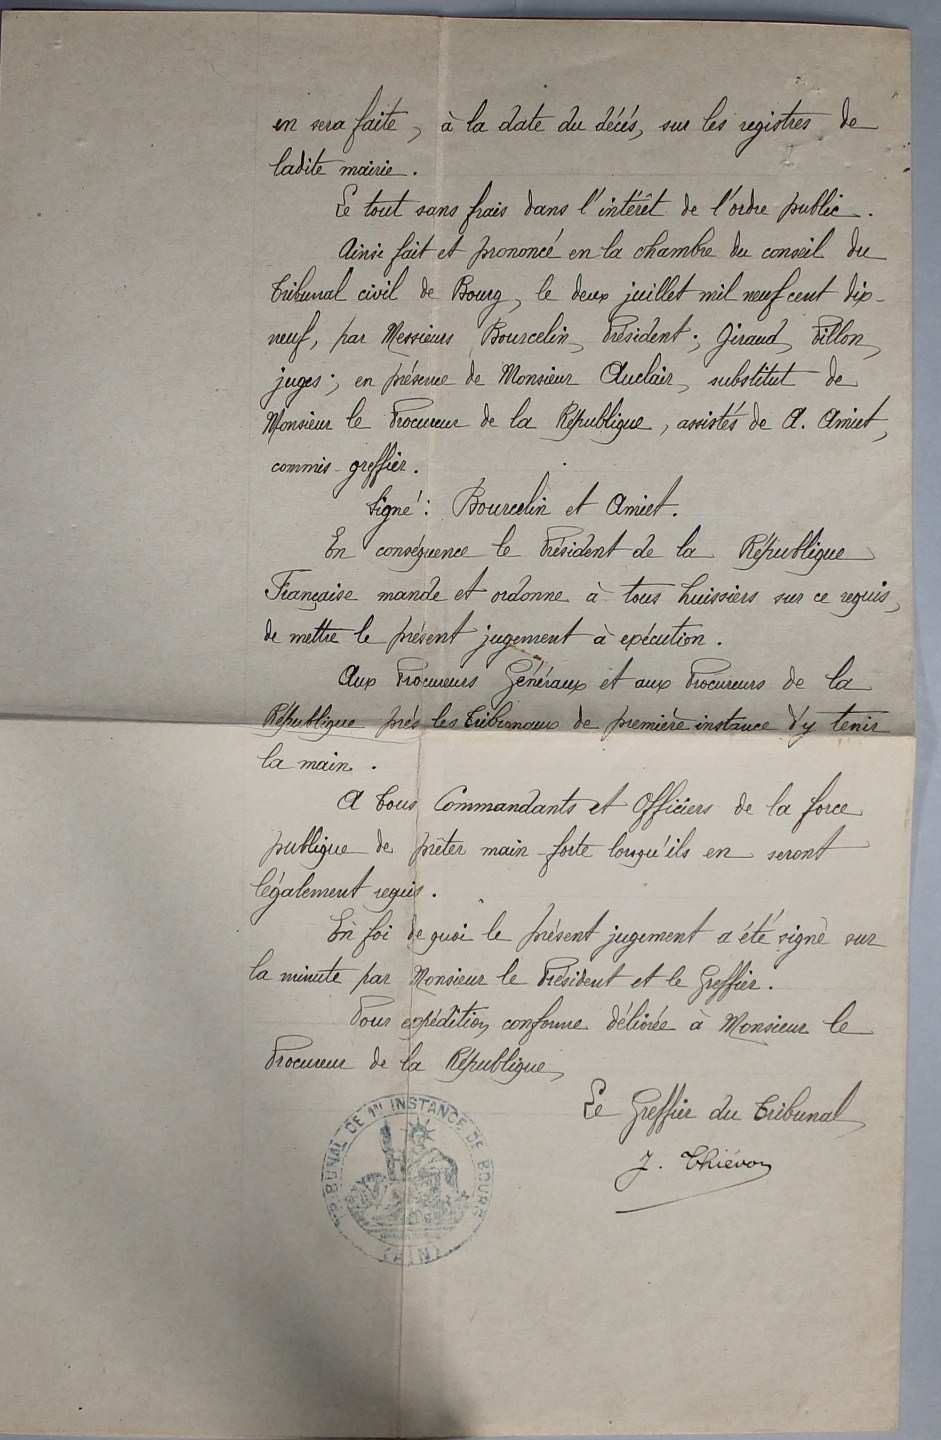 en sera faite, à la date du décès, sur les registres de
ladite mairie.
Le tout sans frais dans l'intérêt de l'ordre public.
Ainsi fait et prononcé en la chambre du conseil du
Tribunal civil de Bourg, le deux juillet mil neuf cent dix-
neuf, par Messieurs Bourcelin, Président; Giraud, Pillon,
juges; en présence de Monsieur Auclair, substitut de
Monsieur le Procureur de la République, assistés de A. Amiet,
commis-greffier.
Signé: Bourcelin et Amiet.
En conséquence le Président de la République
Française mande et ordonne à tous huissiers sur ce requis,
de mettre le présent jugement à exécution.
Aux Procureurs Généraux et aux Procureurs de la
République près les Tribunaux de première instance d'y tenir
la main.
A tous Commandants et Officiers de la force
publique de prêter main-forte lorsqu'ils en seront
légalement requis.
En foi de quoi le présent jugement a été signé sur
la minute par Monsieur le Président et le Greffier.
Pour expédition conforme délivrée à Monsieur le
Procureur de la République,
Le Greffier du Tribunal,
J. Thiévon
TRIBUNAL DE 1re INSTANCE DE BOURG
(AIN)